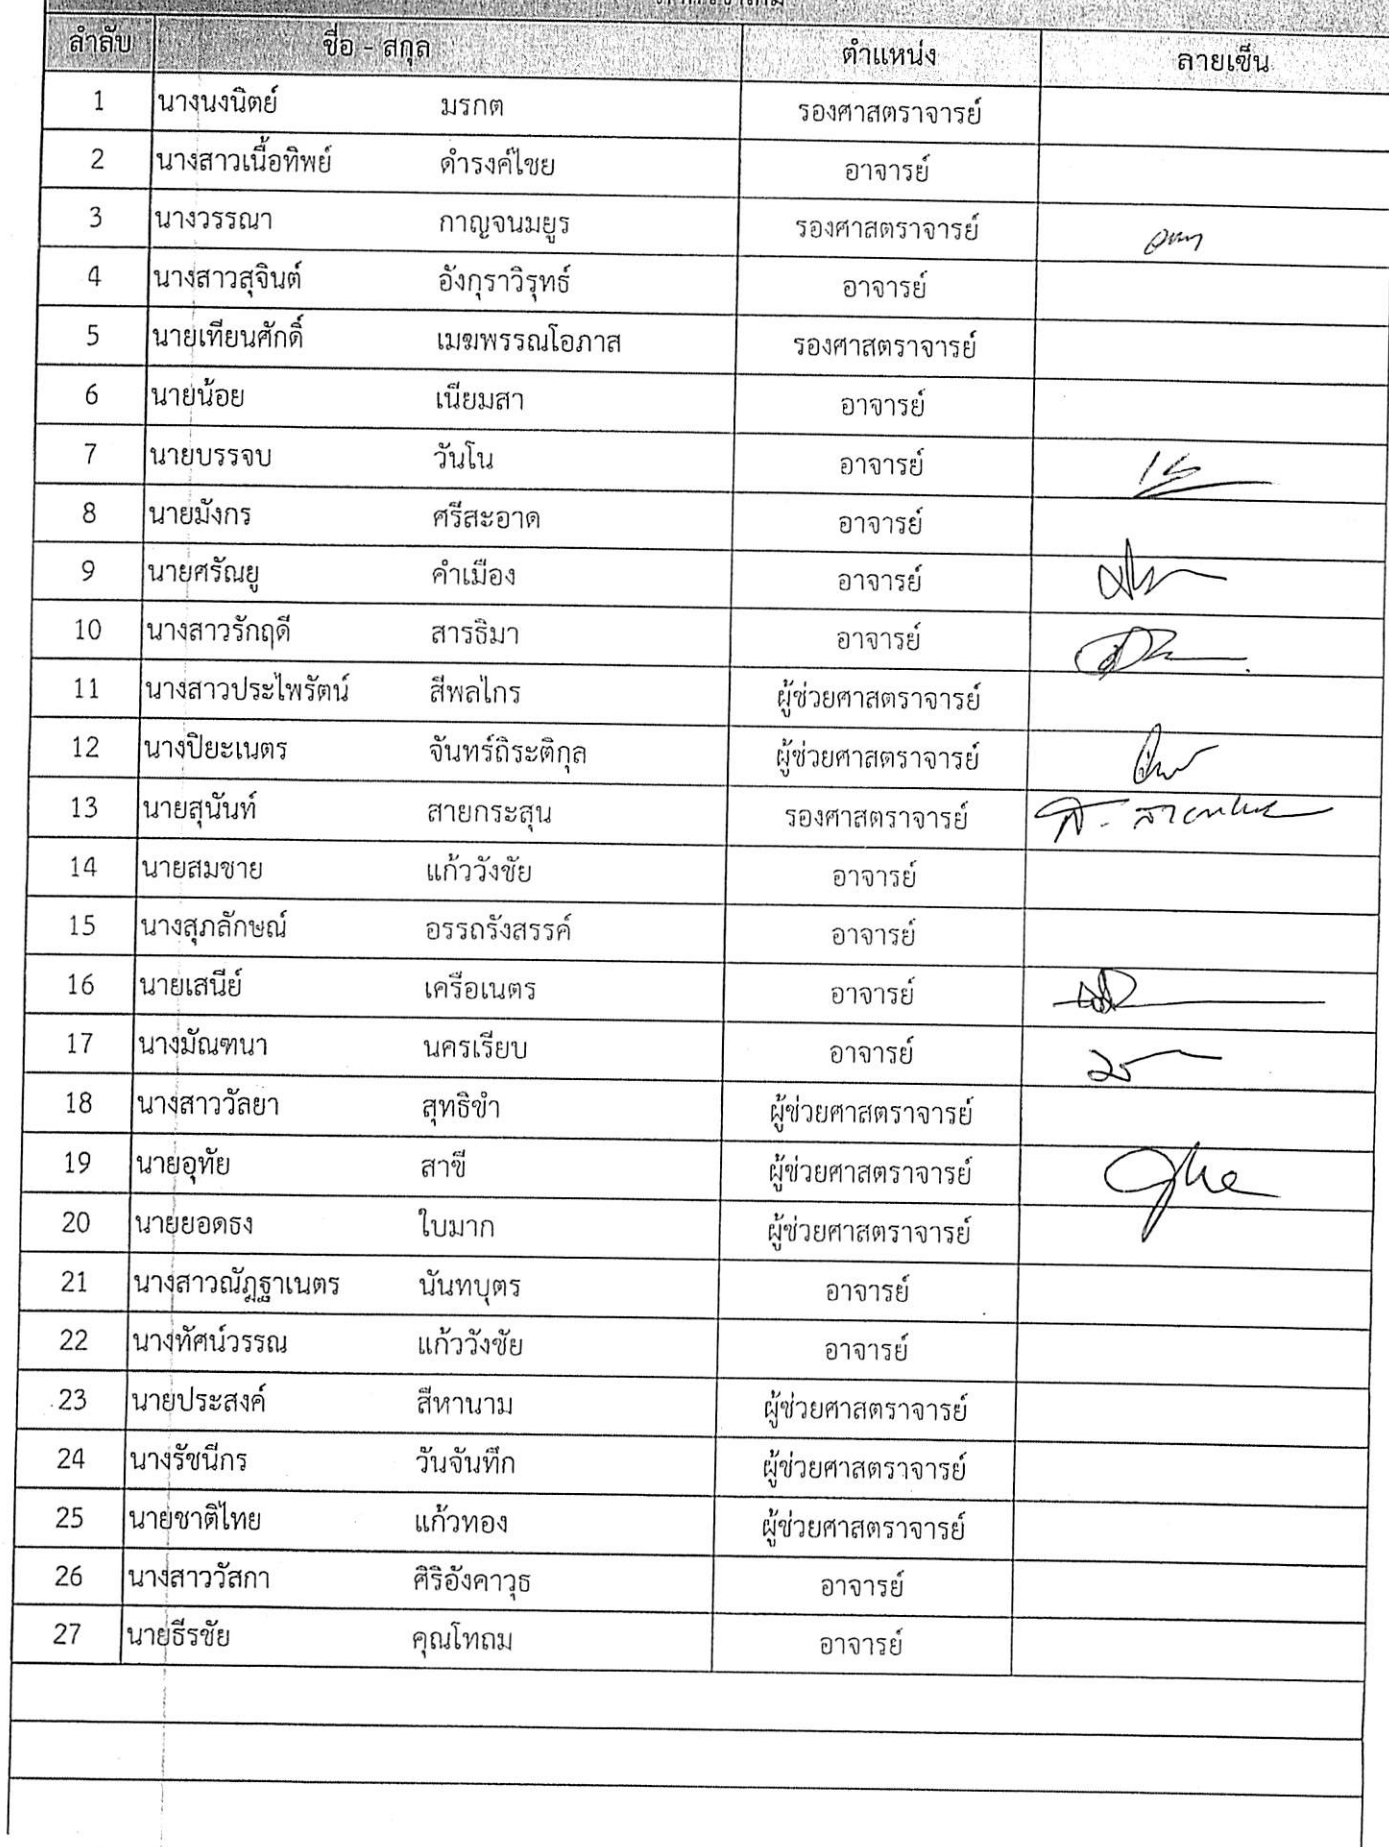 ลำดับ ชื่อ - สกุล ตำแหน่ง ลายเซ็น
1 นางนงนิตย์ มรกต รองศาสตราจารย์
2 นางสาวเนื้อทิพย์ ดำรงค์ไชย อาจารย์
3 นางวรรณา กาญจนมยูร รองศาสตราจารย์
4 นางสาวสุจินต์ อังกุราวิรุทธ์ อาจารย์
5 นายเทียนศักดิ์ เมฆพรรณโอภาส รองศาสตราจารย์
6 นายน้อย เนียมสา อาจารย์
7 นายบรรจบ วันโน อาจารย์
8 นายมังกร ศรีสะอาด อาจารย์
9 นายศรัณยู คำเมือง อาจารย์
10 นางสาวรักฤดี สารธิมา อาจารย์
11 นางสาวประไพรัตน์ สีพลไกร ผู้ช่วยศาสตราจารย์
12 นางปิยะเนตร จันทร์ถิระติกุล ผู้ช่วยศาสตราจารย์
13 นายสุนันท์ สายกระสุน รองศาสตราจารย์
14 นายสมชาย แก้ววังชัย อาจารย์
15 นางสุภลักษณ์ อรรถรังสรรค์ อาจารย์
16 นายเสนีย์ เครือเนตร อาจารย์
17 นางมัณฑนา นครเรียบ อาจารย์
18 นางสาววัลยา สุทธิขำ ผู้ช่วยศาสตราจารย์
19 นายอุทัย สาขี ผู้ช่วยศาสตราจารย์
20 นายยอดธง ใบมาก ผู้ช่วยศาสตราจารย์
21 นางสาวณัฏฐาเนตร นันทบุตร อาจารย์
22 นางทัศน์วรรณ แก้ววังชัย อาจารย์
23 นายประสงค์ สีหานาม ผู้ช่วยศาสตราจารย์
24 นางรัชนีกร วันจันทึก ผู้ช่วยศาสตราจารย์
25 นายชาติไทย แก้วทอง ผู้ช่วยศาสตราจารย์
26 นางสาววัสกา ศิริอังคาวุธ อาจารย์
27 นายธีรชัย คุณโทถม อาจารย์